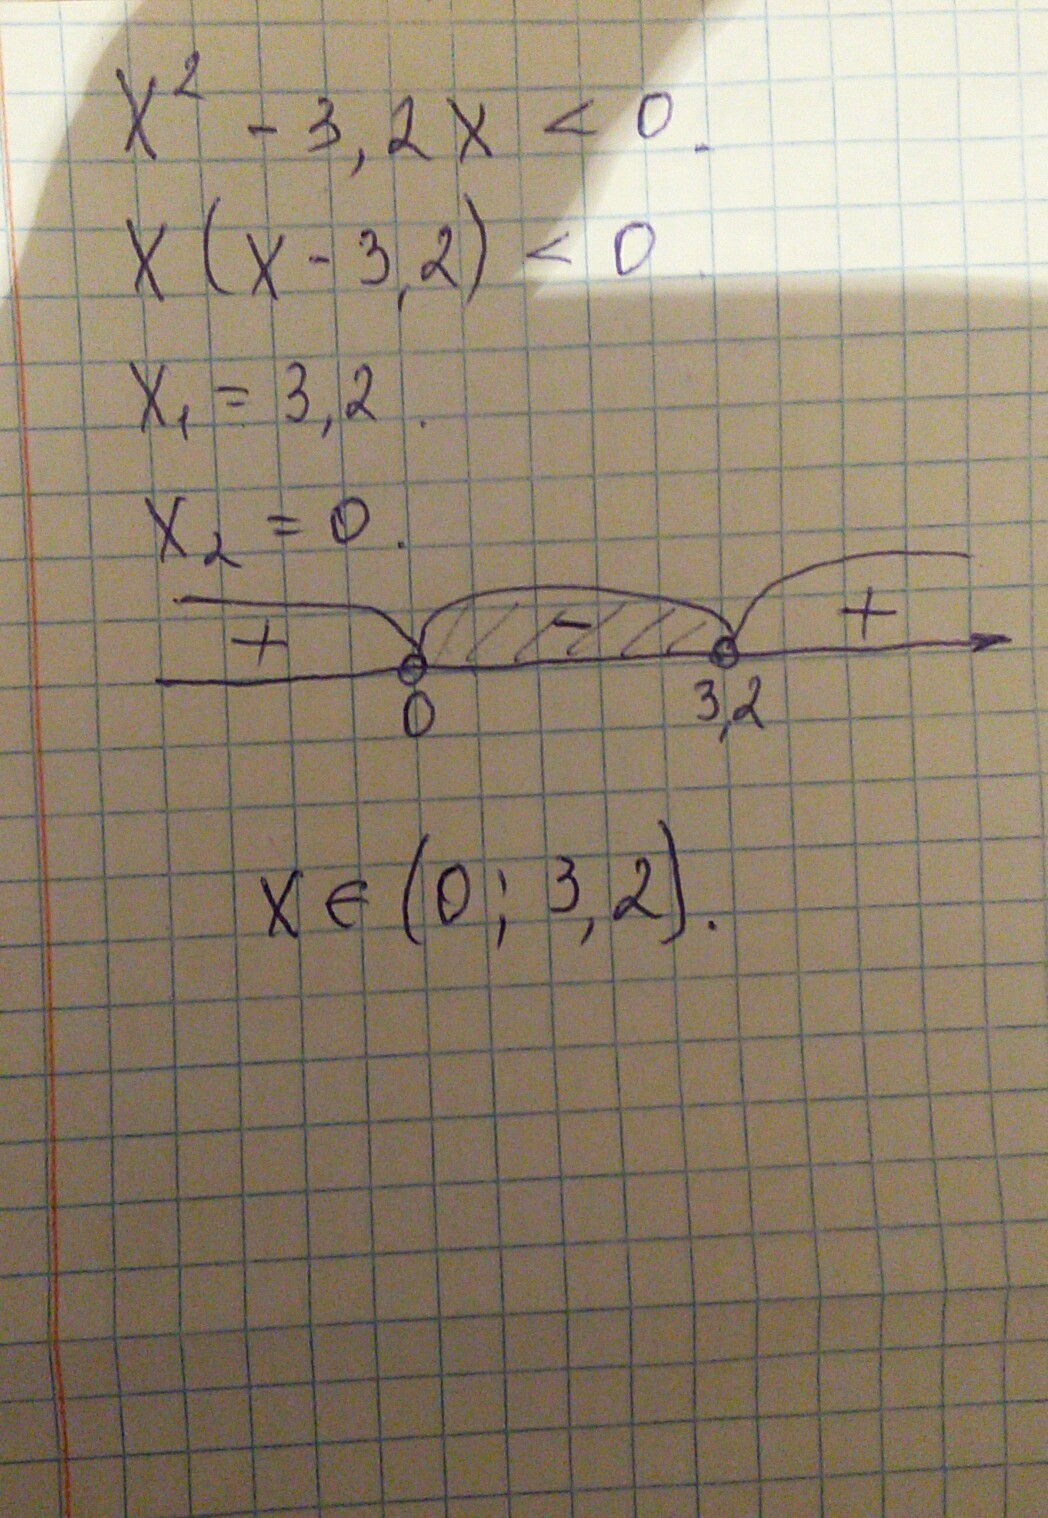 x² - 3,2x < 0.
x(x - 3,2) < 0
x₁ = 3,2.
x₂ = 0.
+ - +
0 3,2
x ∈ (0; 3,2).